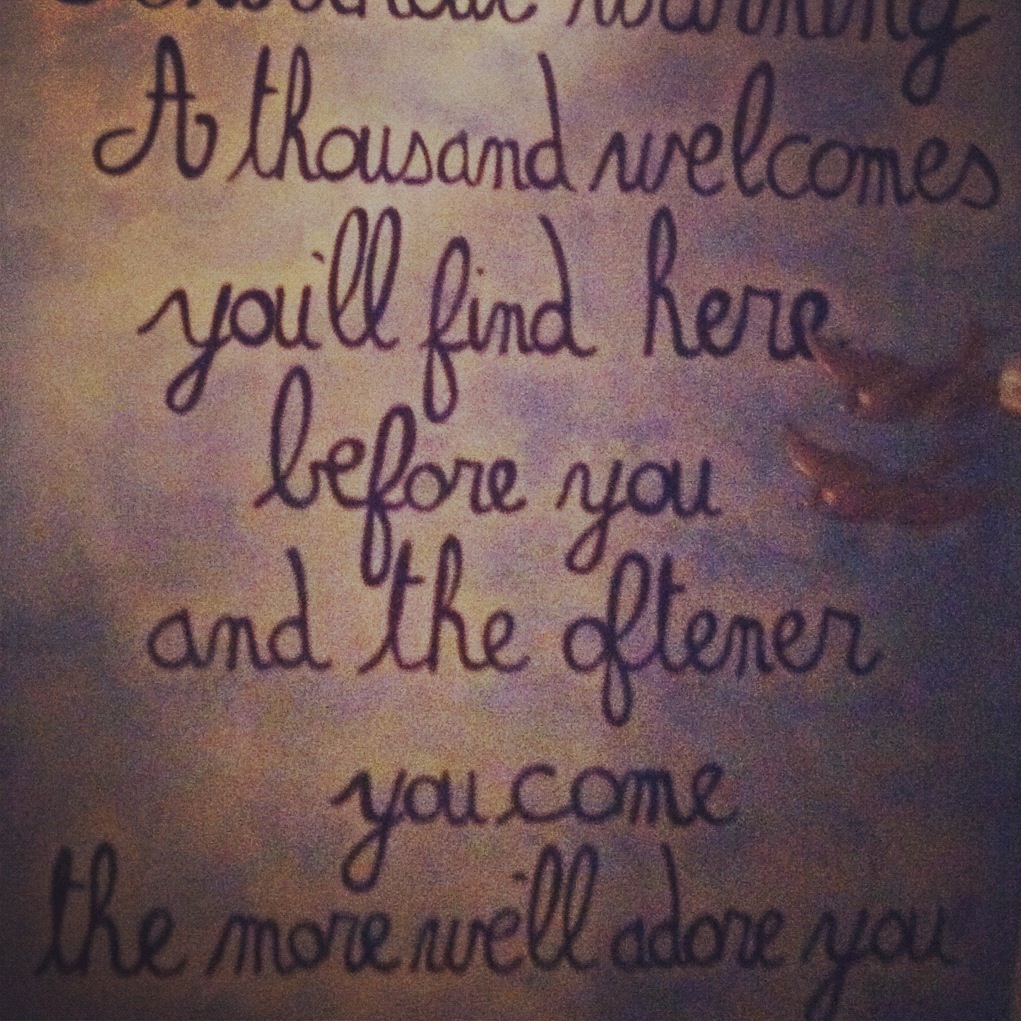 without warning
A thousand welcomes
you'll find here
before you
and the oftener
you come
the more we'll adore you